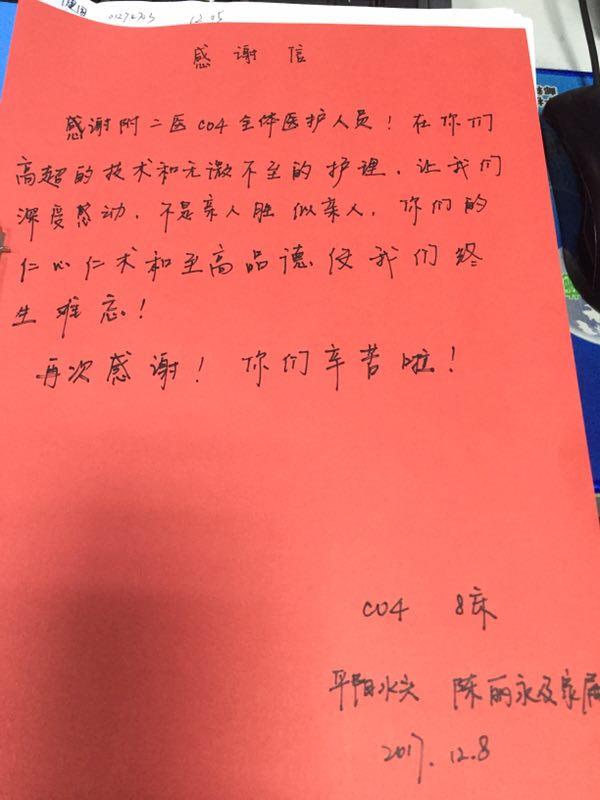 12.05
感谢信
感谢附二医C04全体医护人员！在你们
高超的技术和无微不至的护理，让我们
深度感动，不是亲人胜似亲人，你们的
仁心仁术和至高品德使我们终
生难忘！
再次感谢！你们辛苦啦！
C04 8床
平阳水头 陈丽永及家属
2017.12.8